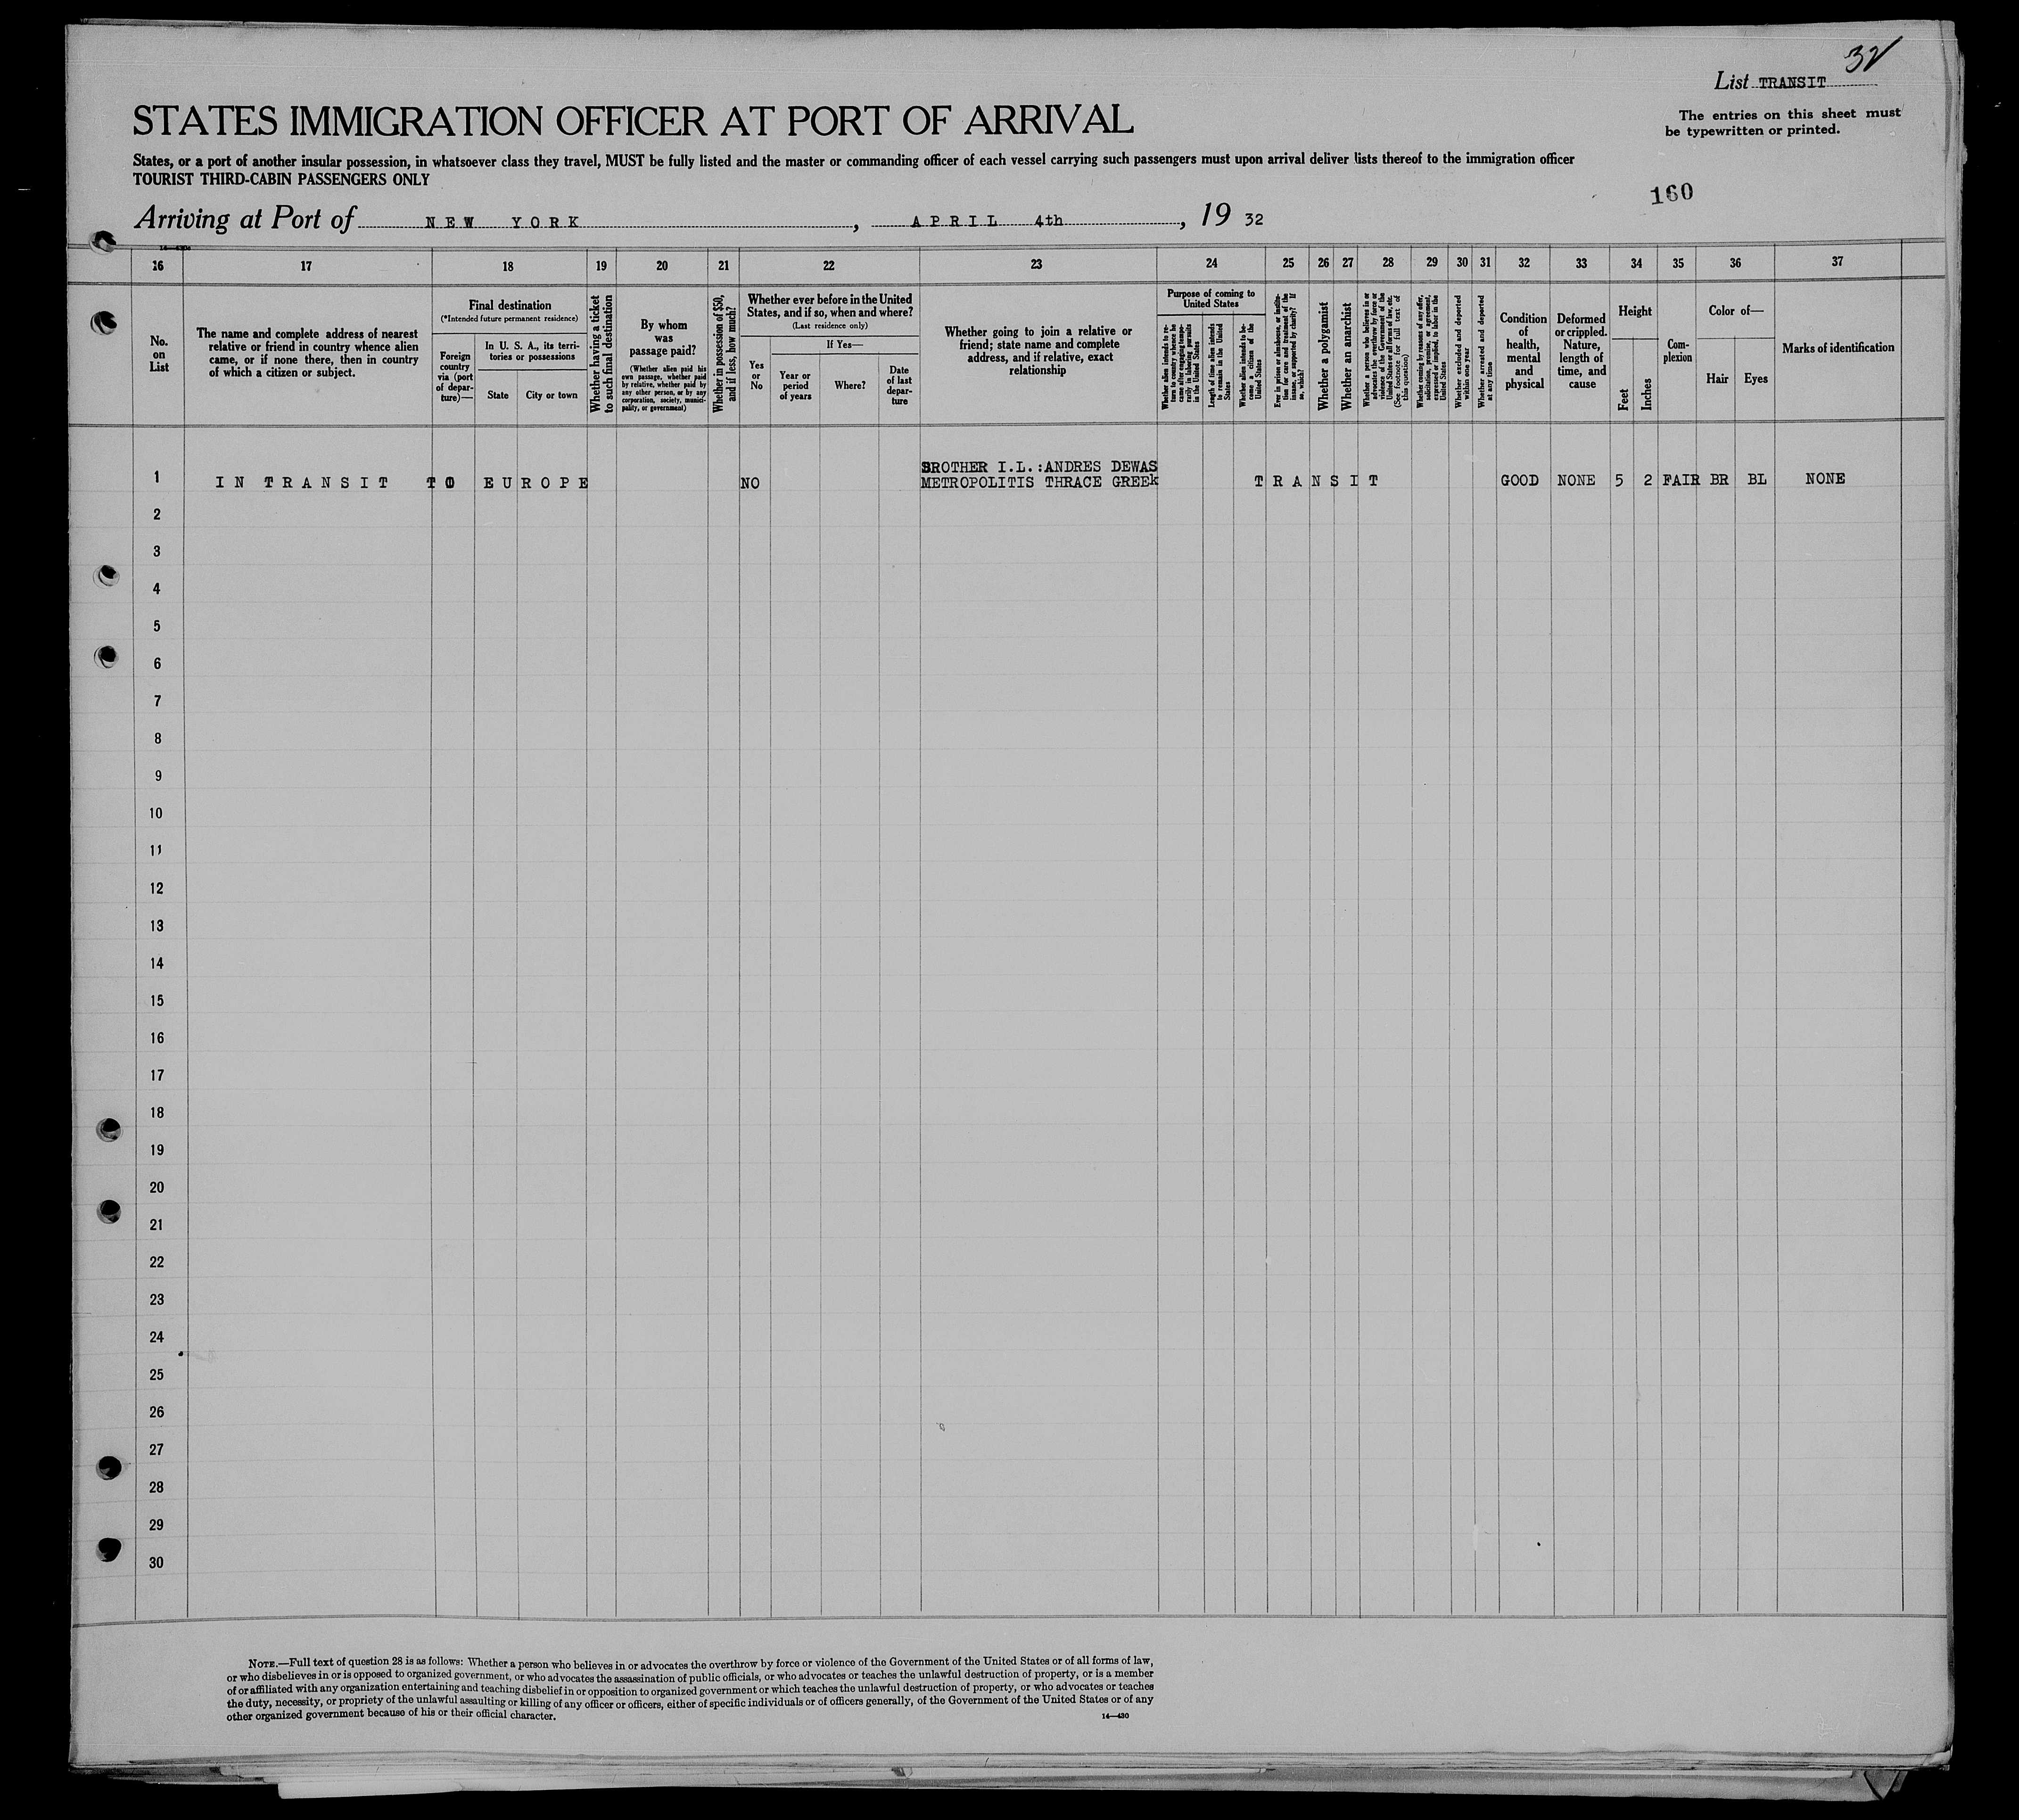 32
List TRANSIT
The entries on this sheet must
be typewritten or printed.
STATES IMMIGRATION OFFICER AT PORT OF ARRIVAL
States, or a port of another insular possession, in whatsoever class they travel, MUST be fully listed and the master or commanding officer of each vessel carrying such passengers must upon arrival deliver lists thereof to the immigration officer
TOURIST THIRD-CABIN PASSENGERS ONLY
160
Arriving at Port of NEW YORK, APRIL 4th, 19 32
16 17 18 19 20 21 22 23 24 25 26 27 28 29 30 31 32 33 34 35 36 37
No.
on
List
The name and complete address of nearest
relative or friend in country whence alien
came, or if none there, then in country
of which a citizen or subject.
Final destination
(*Intended future permanent residence)
Foreign
country
via (port
of depar-
ture)—
In U. S. A., its terri-
tories or possessions
State
City or town
Whether having a ticket
to such final destination
By whom
was
passage paid?
(Whether alien paid his
own passage, whether paid
by relative, whether paid by
any other person, or by any
corporation, society, munici-
pality, or government)
Whether in possession of $50,
and if less, how much?
Whether ever before in the United
States, and if so, when and where?
(Last residence only)
Yes
or
No
If Yes—
Year or
period
of years
Where?
Date
of last
depar-
ture
Whether going to join a relative or
friend; state name and complete
address, and if relative, exact
relationship
Purpose of coming to
United States
Whether alien intends to re-
turn to country whence he
came after engaging tempo-
rarily in laboring pursuits
in the United States
Length of time alien intends
to remain in the United
States
Whether alien intends to be-
come a citizen of the
United States
Ever in prison or almshouse, or institu-
tion for care and treatment of the
insane, or supported by charity? If
so, which?
Whether a polygamist
Whether an anarchist
Whether a person who believes in or
advocates the overthrow by force or
violence of the Government of the
United States or all forms of law, etc.
(See footnote for full text of
this question)
Whether coming by reasons of any offer,
solicitation, promise, or agreement,
expressed or implied, to labor in the
United States
Whether excluded and deported
within one year
Whether arrested and deported
at any time
Condition
of
health,
mental
and
physical
Deformed
or crippled.
Nature,
length of
time, and
cause
Height
Feet
Inches
Com-
plexion
Color of—
Hair
Eyes
Marks of identification
BROTHER I.L.:ANDRES DEWAS
1 IN TRANSIT TO EUROPE NO METROPOLITIS THRACE GREEk TRANSIT GOOD NONE 5 2 FAIR BR BL NONE
2
3
4
5
6
7
8
9
10
11
12
13
14
15
16
17
18
19
20
21
22
23
24
25
26
27
28
29
30
NOTE.—Full text of question 28 is as follows: Whether a person who believes in or advocates the overthrow by force or violence of the Government of the United States or of all forms of law,
or who disbelieves in or is opposed to organized government, or who advocates the assassination of public officials, or who advocates or teaches the unlawful destruction of property, or is a member
of or affiliated with any organization entertaining and teaching disbelief in or opposition to organized government or which teaches the unlawful destruction of property, or who advocates or teaches
the duty, necessity, or propriety of the unlawful assaulting or killing of any officer or officers, either of specific individuals or of officers generally, of the Government of the United States or of any
other organized government because of his or their official character.
14—430